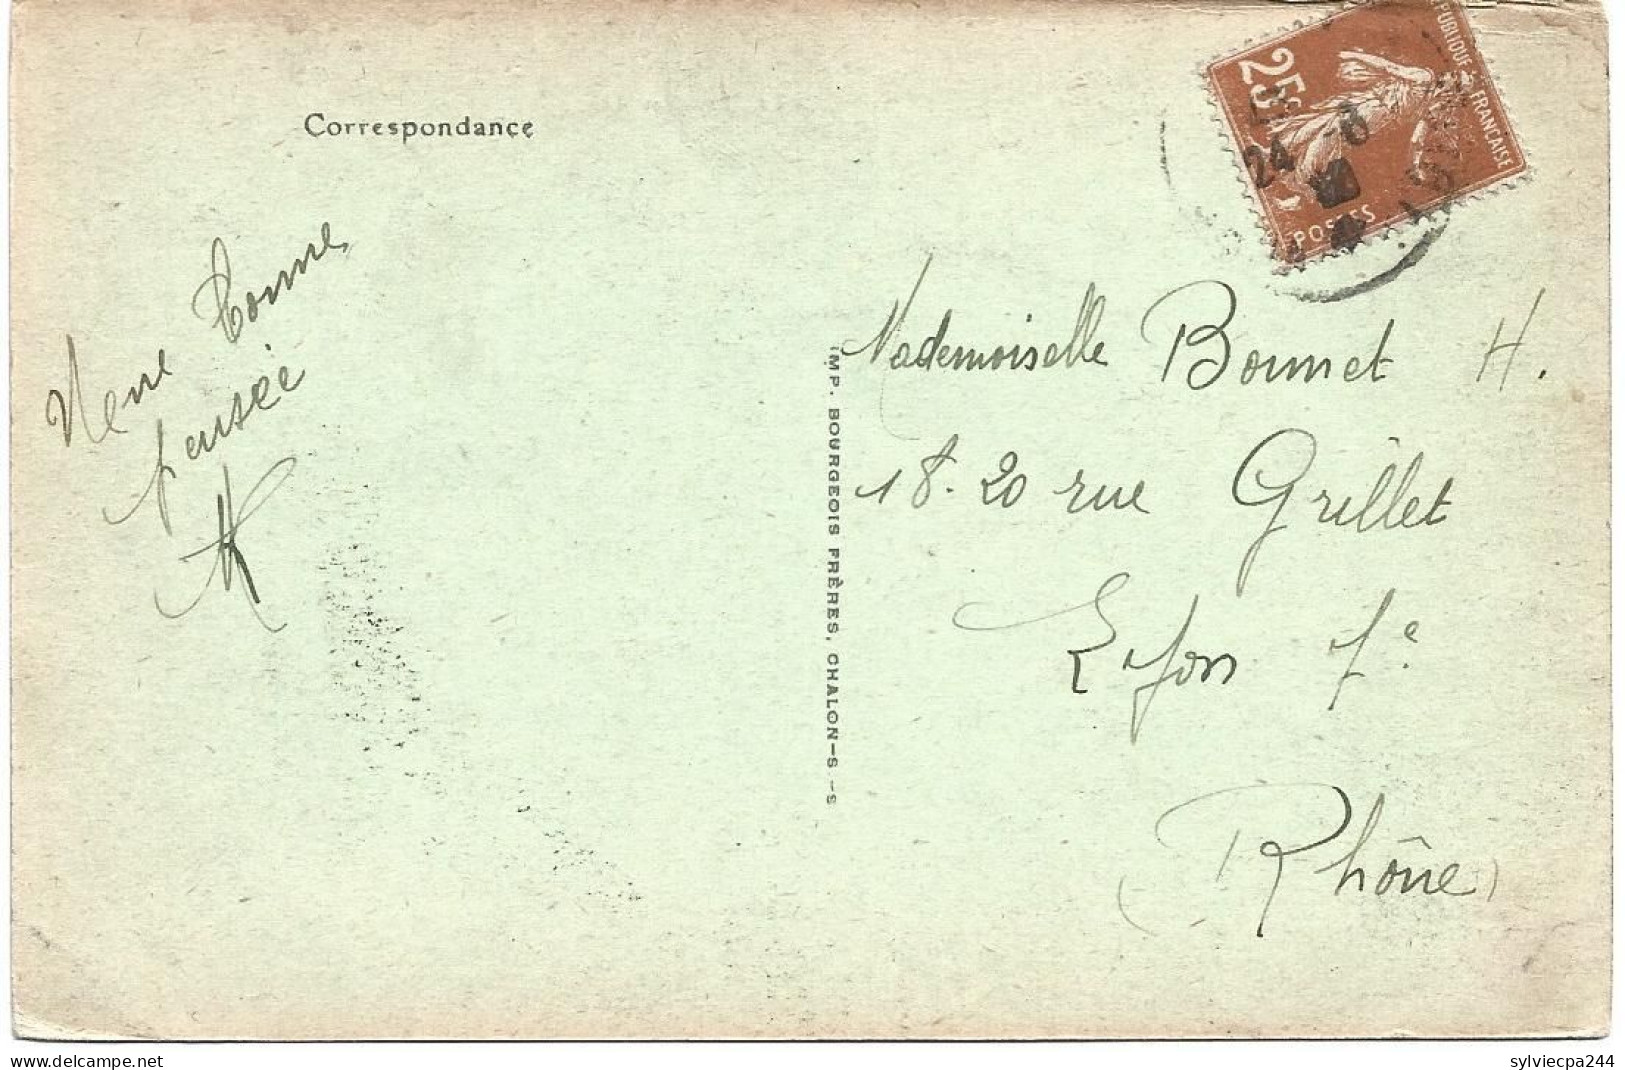 Correspondance
bonne
pensée
IMP. BOURGEOIS FRÈRES, CHALON-S-S
RÉPUBLIQUE FRANÇAISE
25c
POSTES
24
Mademoiselle Bonnet H.
18-20 rue Grillet
Lyon 7e
(Rhône)
sylviecpa244